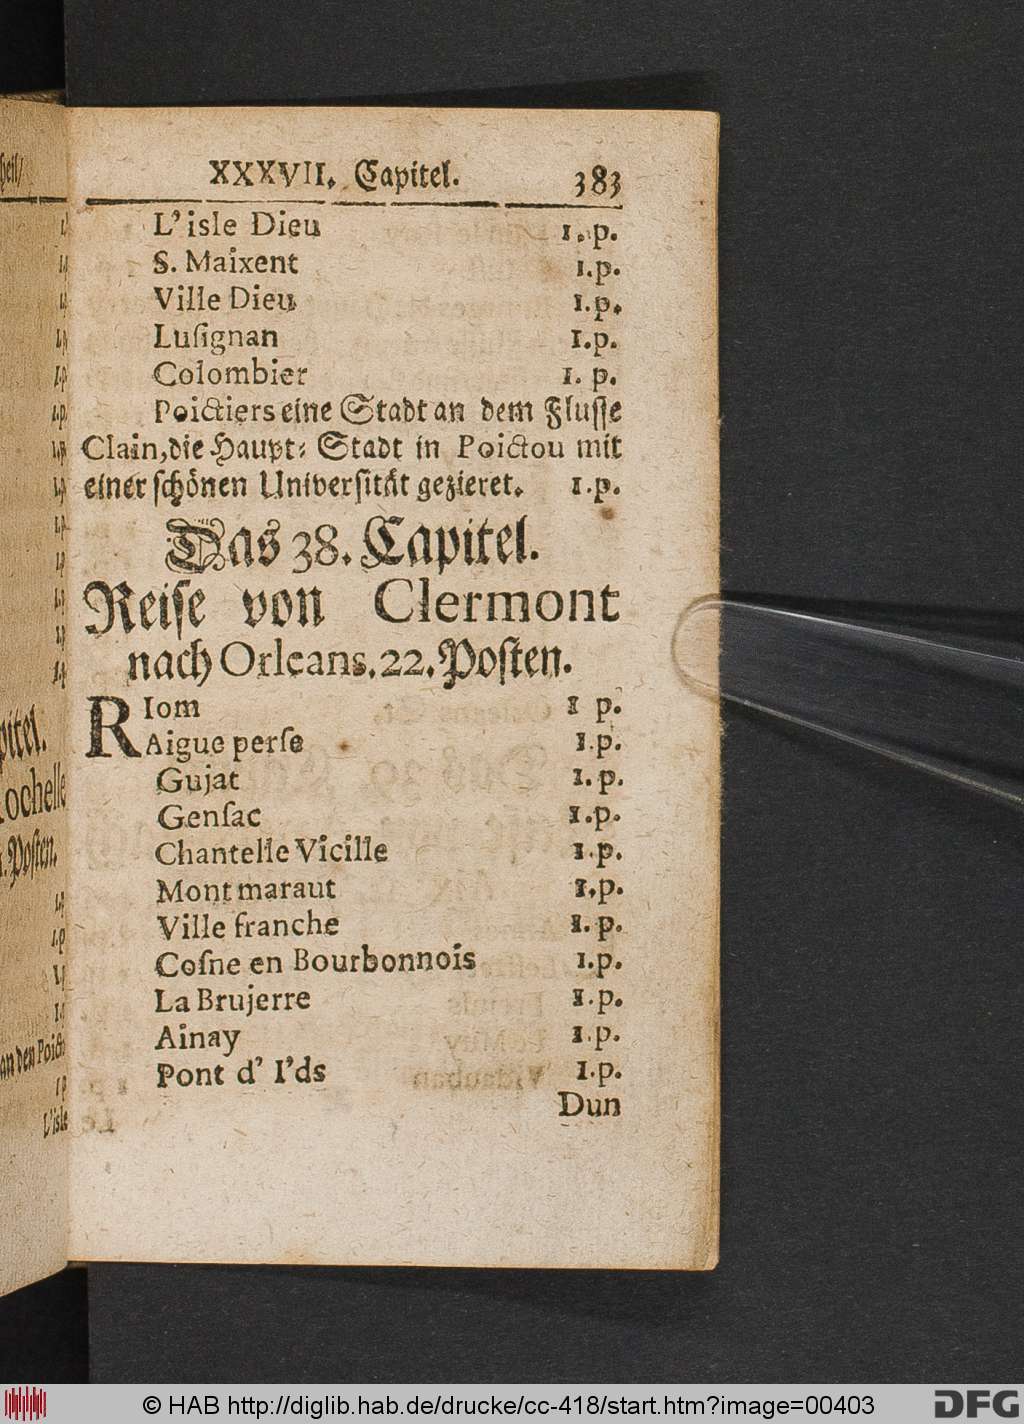 XXXVII. Capitel. 383
L'isle Dieu 1. p.
S. Maixent 1.p.
Ville Dieu 1.p.
Luſignan 1.p.
Colombier 1. p.
Poictiers eine Stadt an dem Fluſſe
Clain, die Haupt⸗ Stadt in Poictou mit
einer ſchönen Univerſität gezieret. 1.p.
Das 38. Capitel.
Reiſe von Clermont
nach Orleans. 22. Poſten.
RIom 1 p.
Aigue perſe 1.p.
Gujat 1.p.
Genſac 1.p.
Chantelle Vieille 1.p.
Mont maraut 1.p.
Ville franche 1.p.
Coſne en Bourbonnois 1.p.
La Brujerre 1.p.
Ainay 1.p.
Pont d' I'ds 1.p.
Dun
heil/
pitel.
ochelle
Poſten.
an den Poict
L'isle
© HAB http://diglib.hab.de/drucke/cc-418/start.htm?image=00403
DFG